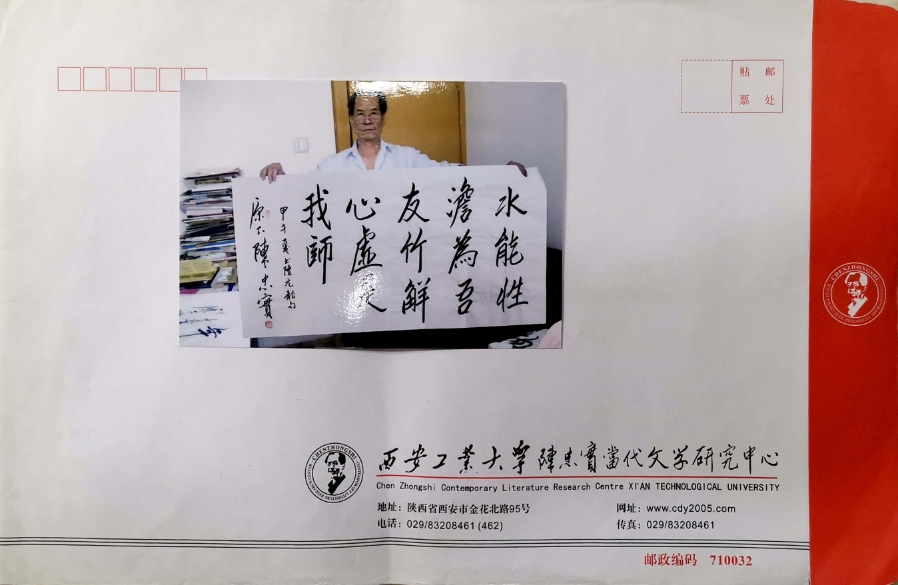 贴 邮
票 处
水能性
澹為吾
友竹解
心虛
我師
甲午夏書陸元龍句
原下陳忠實
CHENZHONGSHI
CHENZHONGSHI
西安工業大學陳忠實當代文学研究中心
Chen Zhongshi Contemporary Literature Research Centre XI'AN TECHNOLOGICAL UNIVERSITY
地址：陕西省西安市金花北路95号
网址：www.cdy2005.com
电话：029/83208461(462)
传真：029/83208461
邮政编码 710032